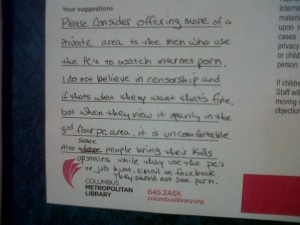 Your suggestions
Please Consider offering more of a
Private area to the men who use
the PC's to watch internet porn.
I do not believe in censorship and
if thats what they want that's fine,
but when they view it openly in the
3rd floor pc area, it is uncomfortable
Also some people bring their kids
upstairs while they use the pc's
to job hunt, email or facebook
They should not see porn.
COLUMBUS
METROPOLITAN
LIBRARY
645.2ASK
columbuslibrary.org
interne
materia
upon r
cases
privacy
or child
person
If childre
Staff will
moving
objection